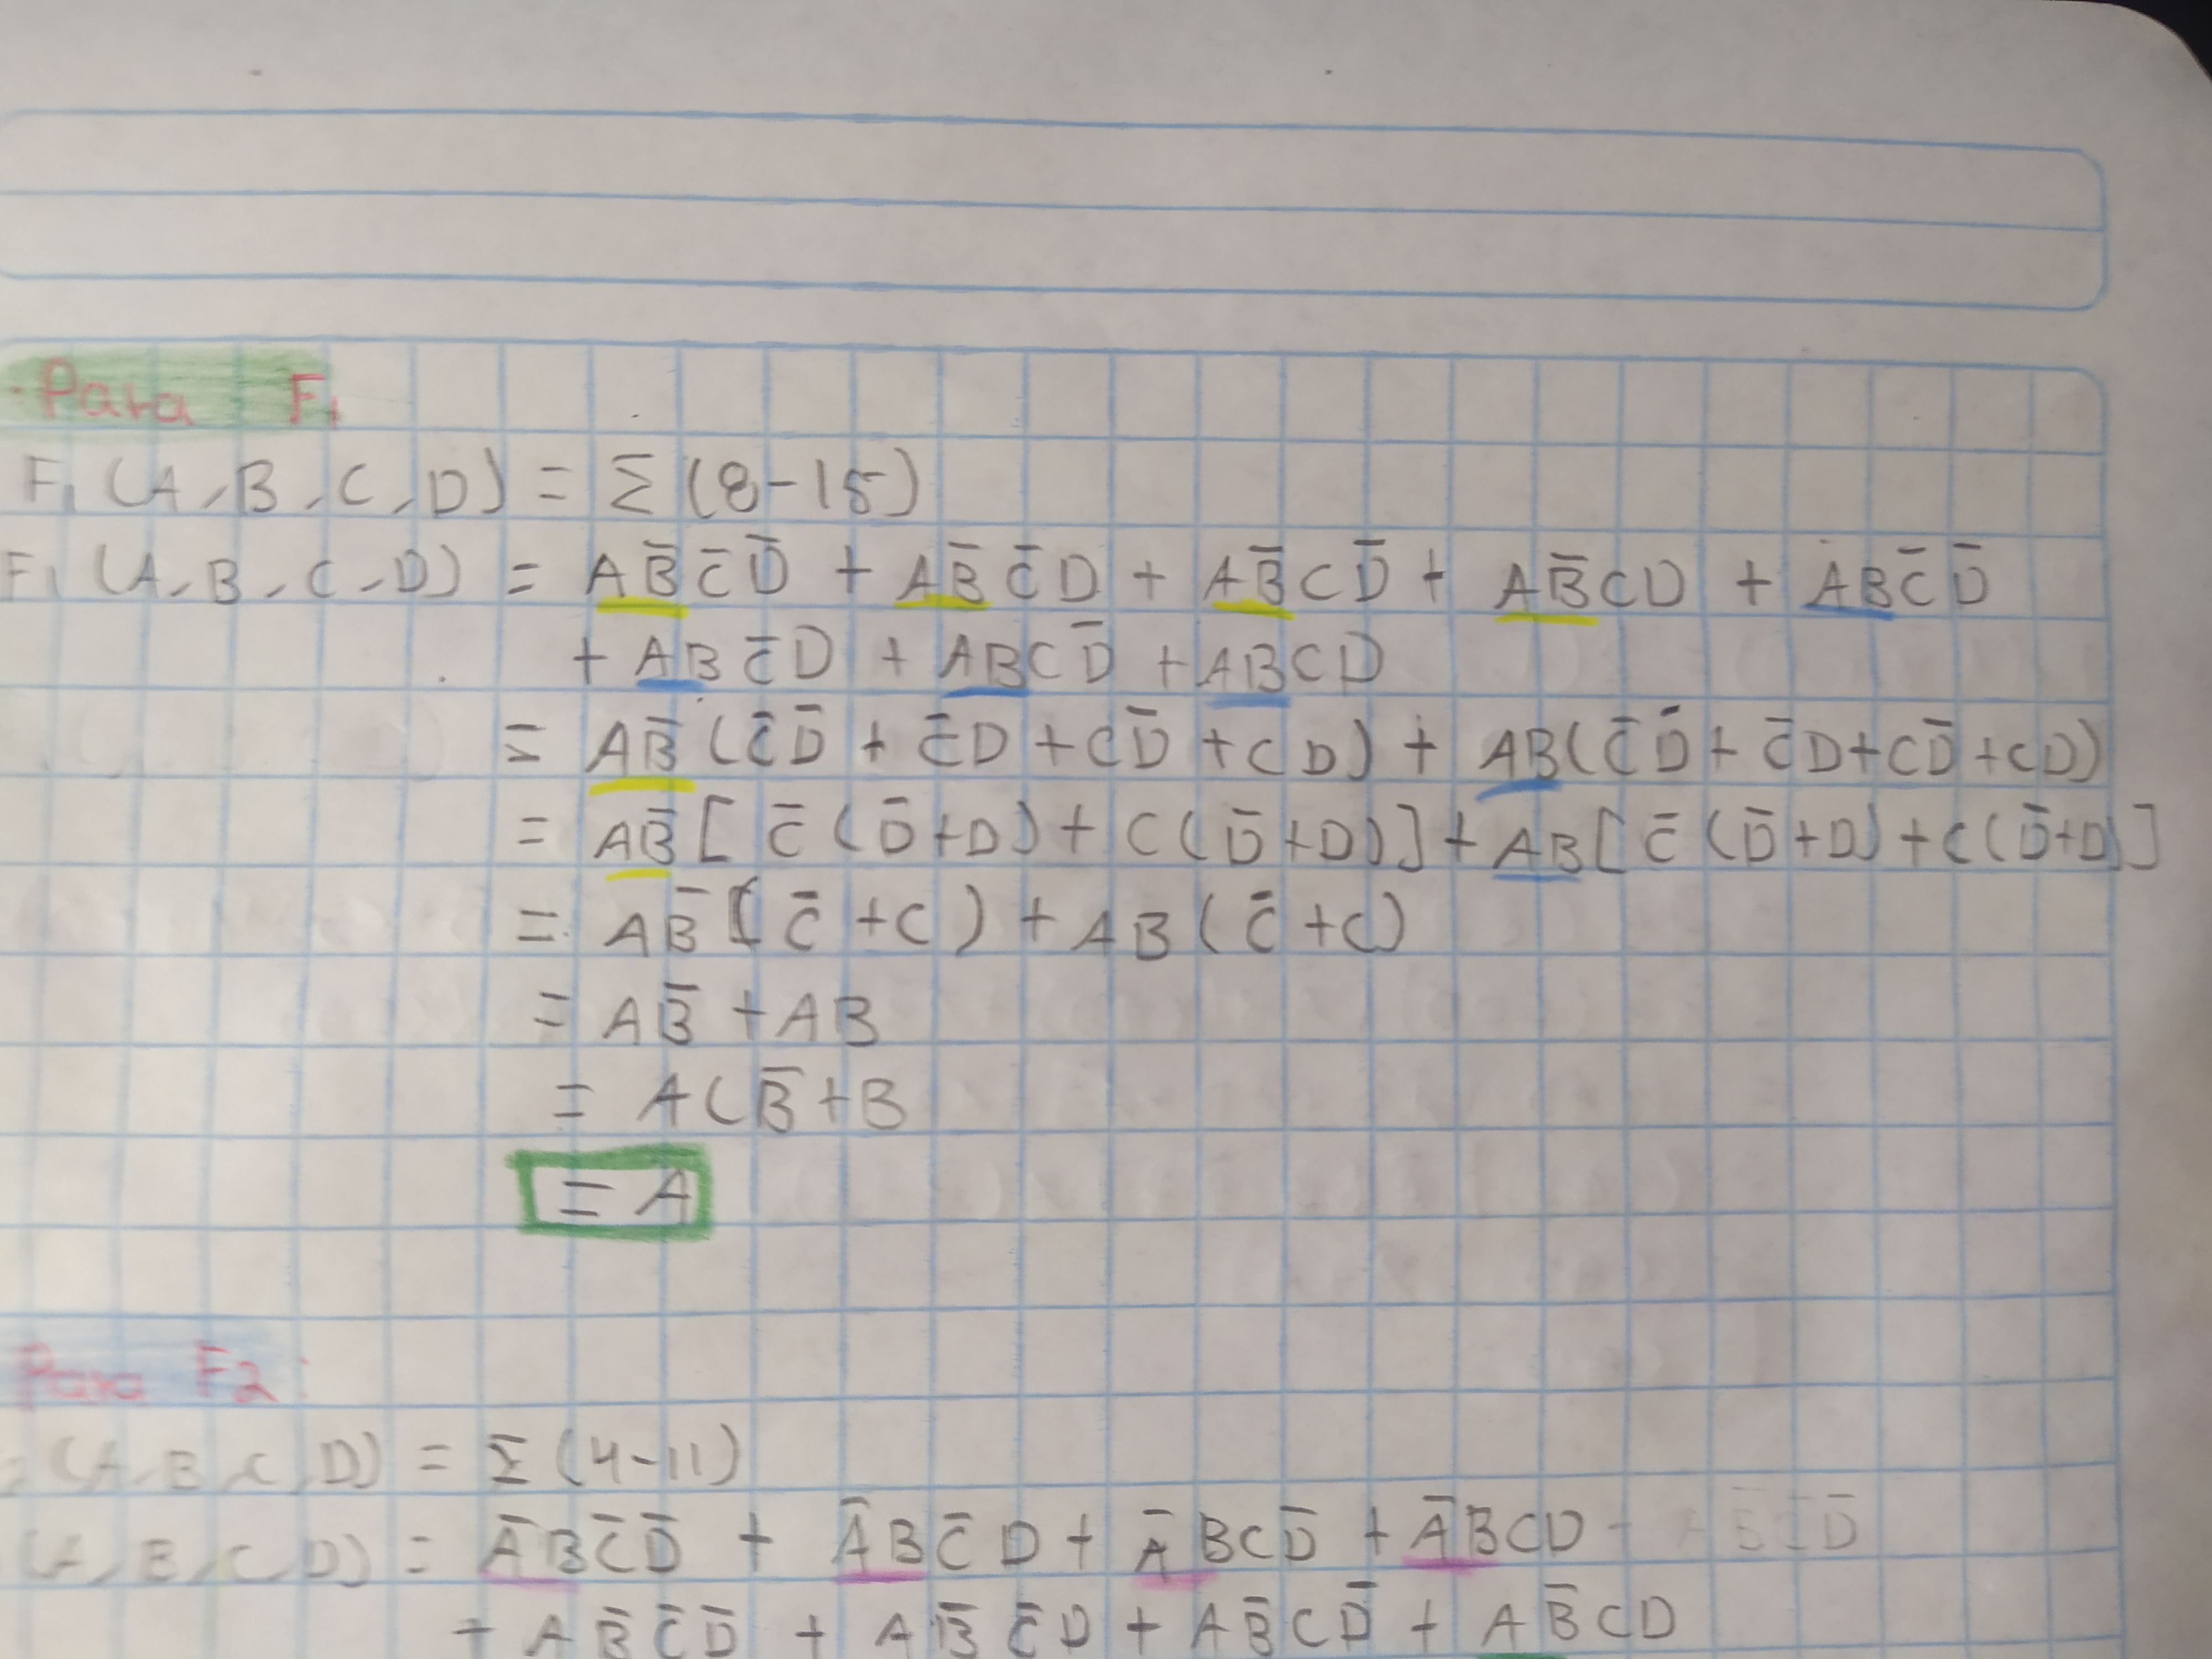 · Para F₁
F₁ (A,B,C,D) = Σ (8-15)
F₁ (A,B,C,D) = AB̅C̅D̅ + AB̅C̅D + AB̅CD̅ + AB̅CD + ABC̅D̅
+ ABC̅D + ABCD̅ + ABCD
= AB̅ (C̅D̅ + C̅D + CD̅ + CD) + AB(C̅D̅ + C̅D + CD̅ + CD)
= AB̅ [ C̅ (D̅+D) + C(D̅+D)] + AB[ C̅ (D̅+D) + C(D̅+D)]
= AB̅ [ C̅ + C ) + AB ( C̅ + C)
= AB̅ + AB
= A(B̅+B
= A
Para F2:
(A,B,C,D) = Σ (4-11)
(A,B,C,D) = A̅BC̅D̅ + A̅BC̅D + A̅BCD̅ + A̅BCD
+ AB̅C̅D̅ + AB̅C̅D + AB̅CD̅ + AB̅CD